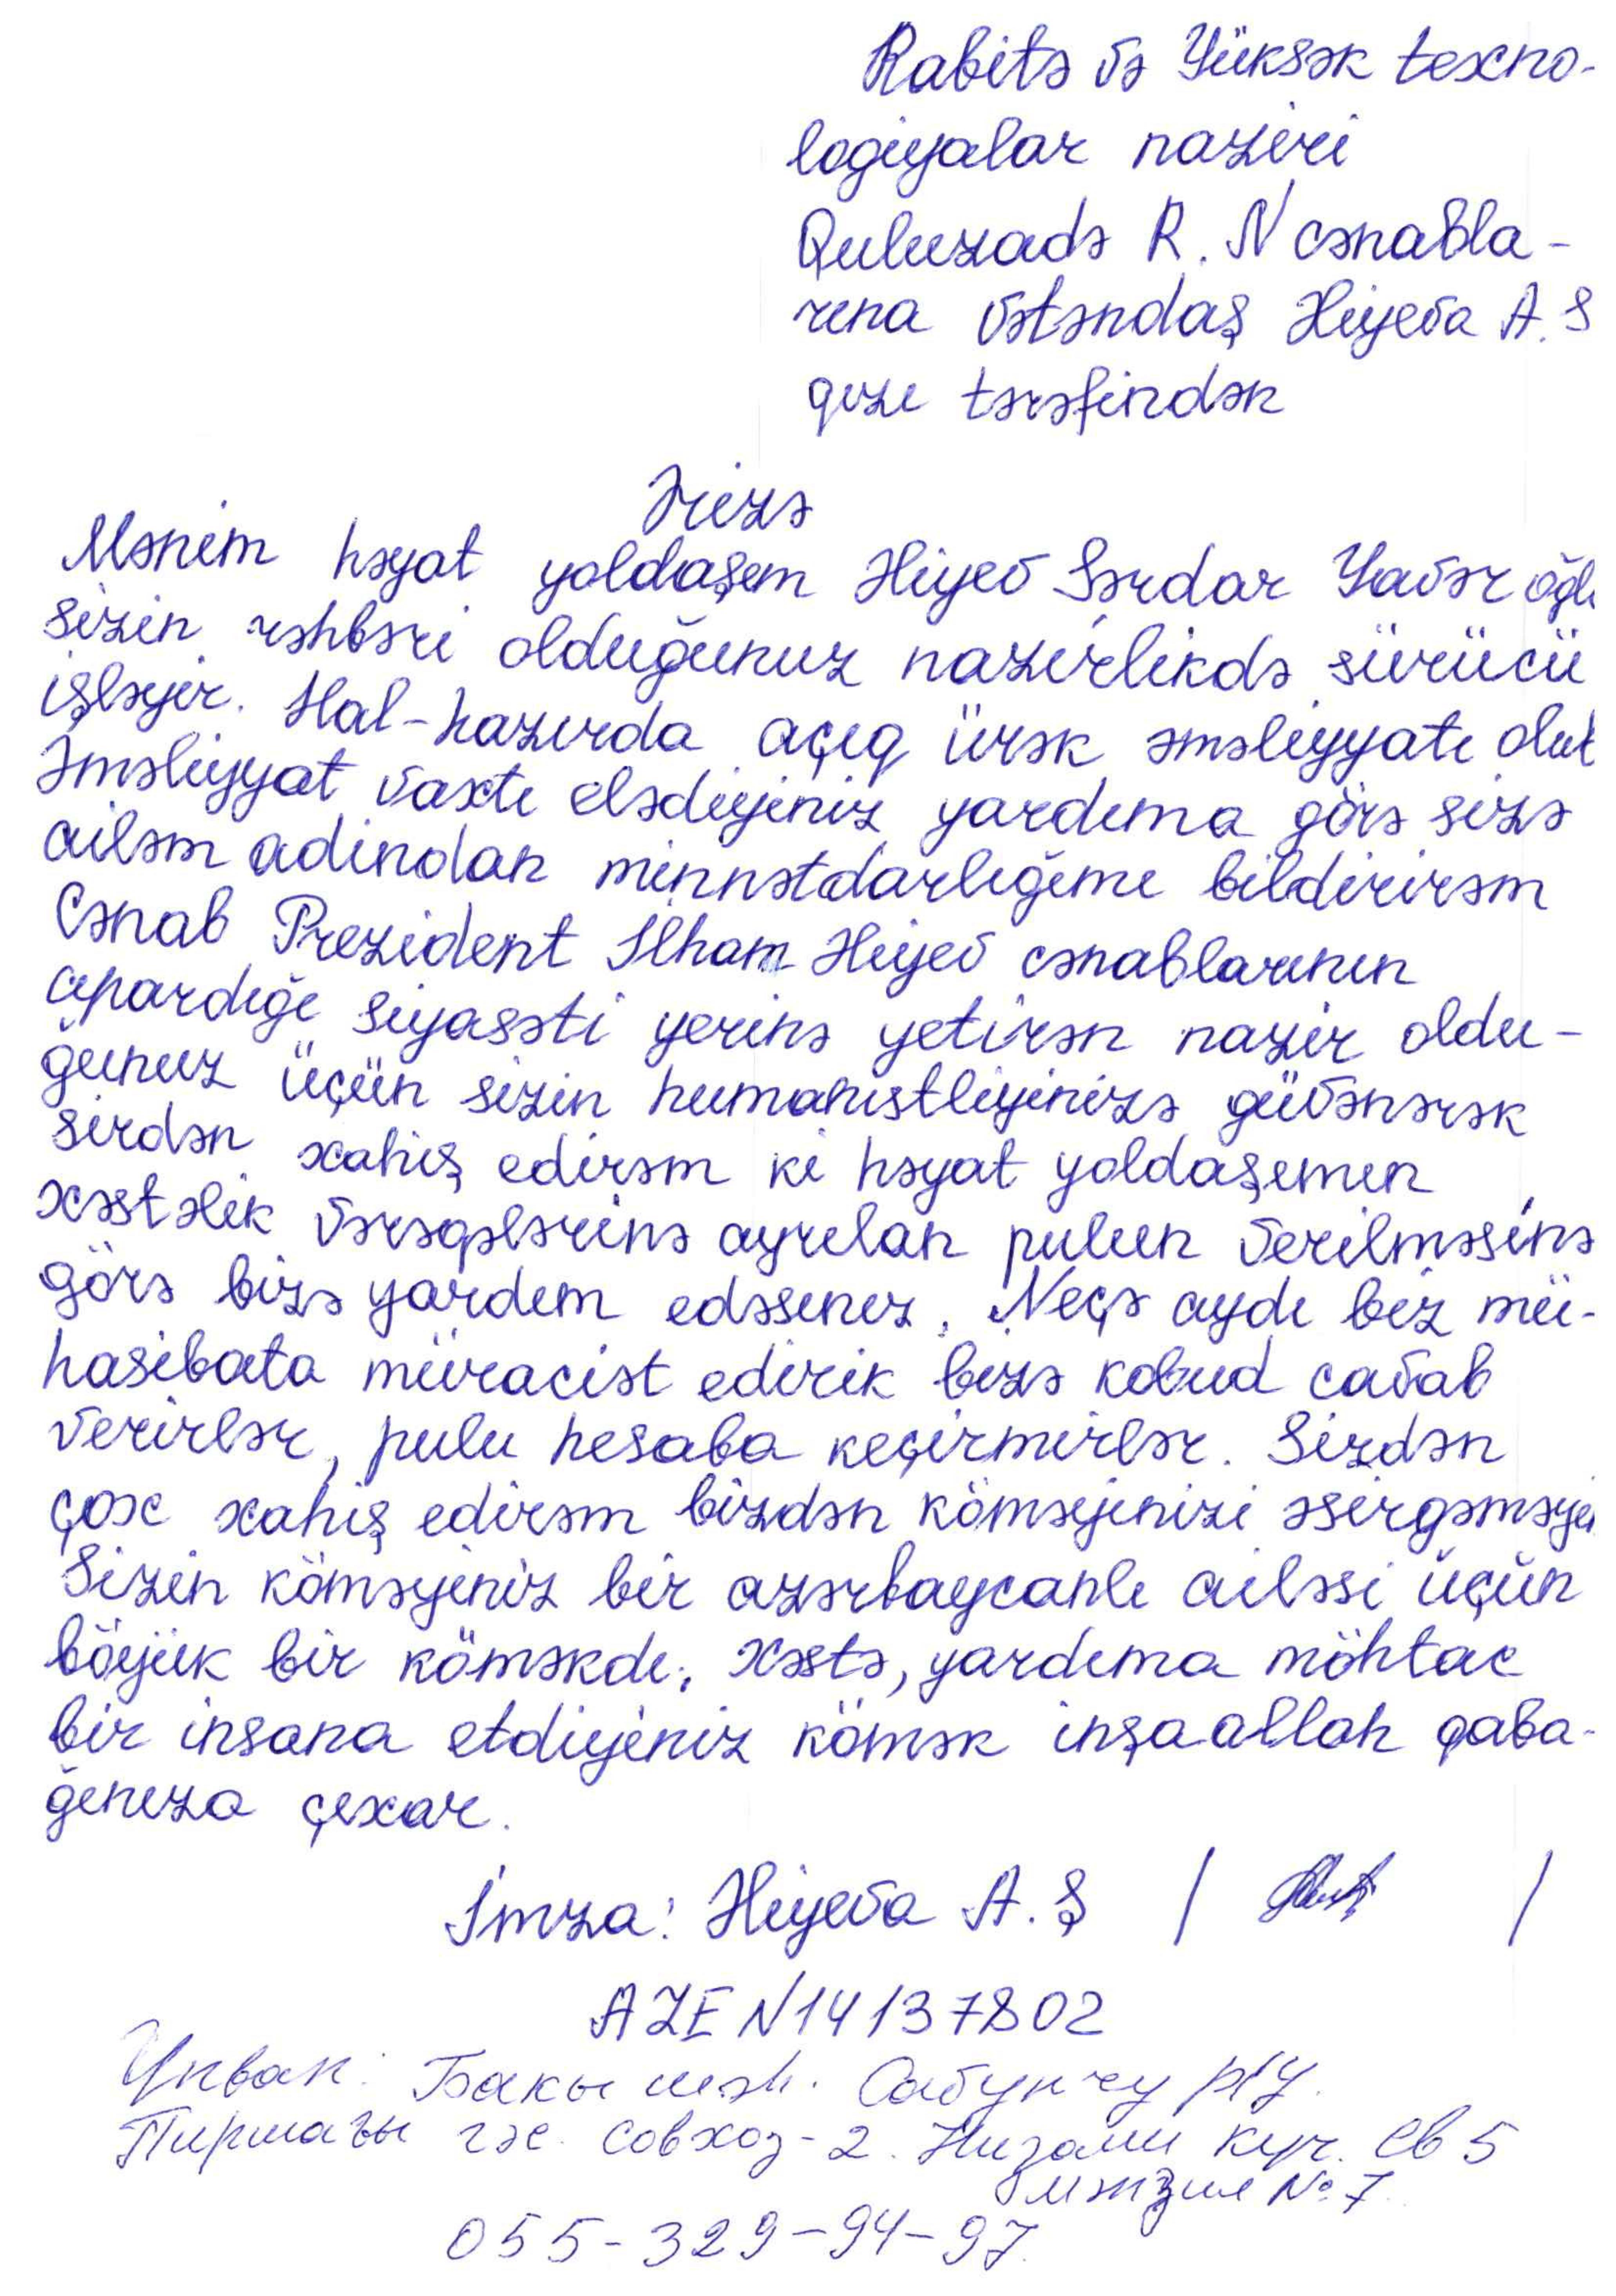 Rabitə və Yüksək texno-
logiyalar naziri
Quluzadə R. N cənabla-
rına vətəndaş Əliyeva A. S
qızı tərəfindən
Ərizə
Mənim həyat yoldaşım Əliyev Sərdar Yavər oğlu
sizin rəhbəri olduğunuz nazirlikdə sürücü
işləyir. Hal-hazırda açıq ürək əməliyyatı olub
Əməliyyat vaxtı elədiyiniz yardıma görə sizə
ailəm adından minnətdarlığımı bildirirəm
Cənab Prezident İlham Əliyev cənablarının
apardığı siyasəti yerinə yetirən nazir oldu-
ğunuz üçün sizin humanistliyinizə güvənərək
sizdən xahiş edirəm ki həyat yoldaşımın
xəstəlik vərəqələrinə ayrılan pulun verilməsinə
görə bizə yardım edəsiniz. Neçə aydı biz mü-
hasibata müraciət edirik bizə kobud cavab
verirlər, pulu hesaba keçirmirlər. Sizdən
çox xahiş edirəm bizdən köməyinizi əsirgəməyi
Sizin köməyiniz bir azərbaycanlı ailəsi üçün
böyük bir köməkdi. Xəstə, yardıma möhtac
bir insana etdiyiniz kömək inşaallah qaba-
ğınıza çıxar.
İmza: Əliyeva A. Ş / /
AZE N14137802
Үнван: Бакы шəh. Сабунчу р/у.
Пиршағы гəс. совхоз-2. Низами күч. ев 5
мəнзил № 7.
055-329-94-97